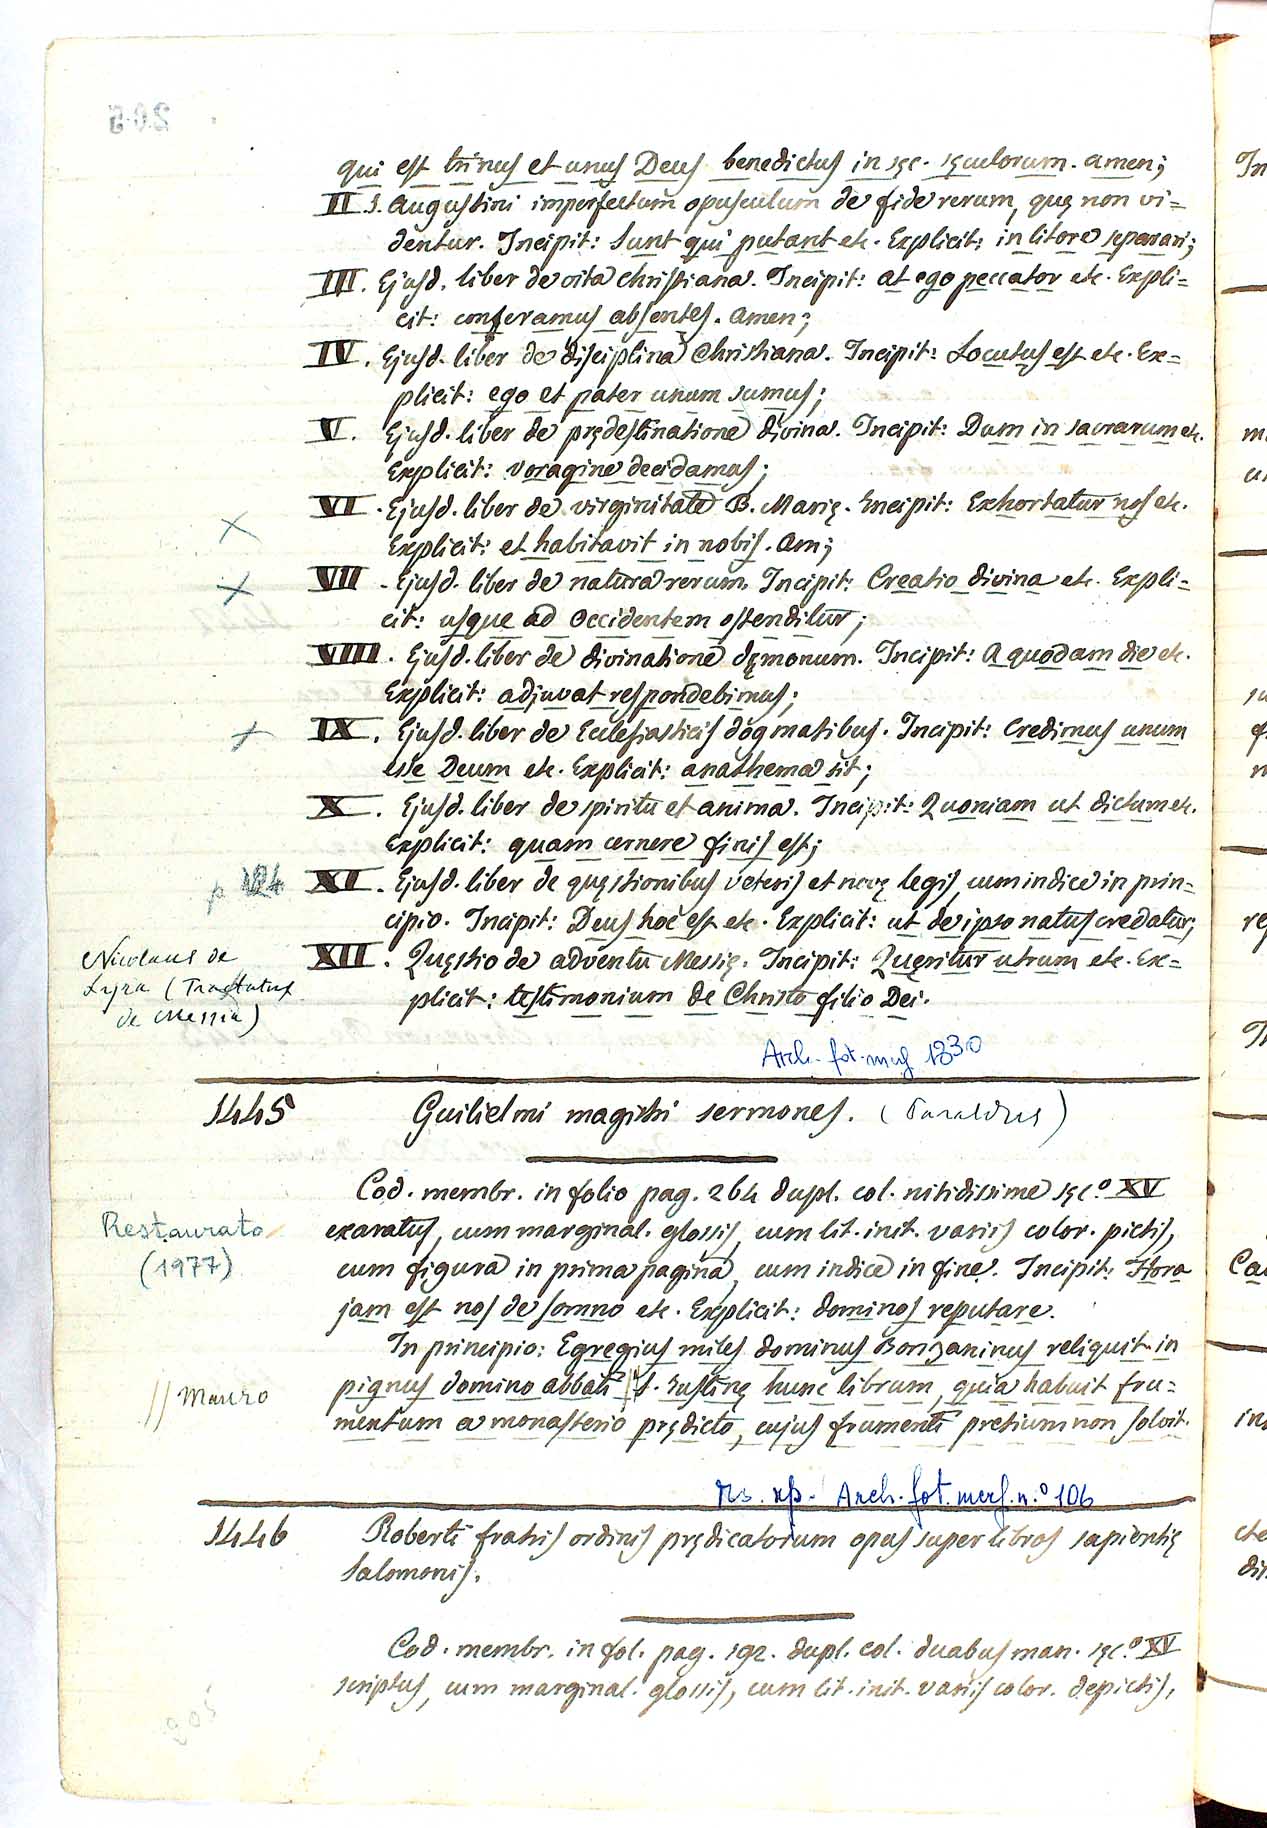 205
qui est trinus et unus Deus benedictus in sęc. sęculorum. amen;
II S. Augustini imperfectum opusculum de fide rerum, quę non vi=
dentur. Incipit: Sunt qui putant etc. Explicit: in litore separari;
III. Ejusd. liber de vita christiana. Incipit: at ego peccator etc. Expli=
cit: conferamus absentes. Amen;
IV. Ejusd. liber de disciplina Christiana. Incipit: Locutus est etc. Ex=
plicit: ego et pater unum sumus;
V. Ejusd. liber de prędestinatione divina. Incipit: Dum in sacrarum etc.
Explicit: voragine decidamus;
VI. Ejusd. liber de virginitate B. Marię. Incipit: Exhortatur nos etc.
Explicit: et habitavit in nobis. Am;
VII. Ejusd. liber de natura rerum. Incipit: Creatio divina etc. Expli=
cit: usque ad occidentem ostenditur;
VIIII. Ejusd. liber de divinatione dęmonum. Incipit: A quodam die etc.
Explicit: adjuvat respondebimus;
IX. Ejusd. liber de Ecclesiasticis dogmatibus. Incipit: Credimus unum
esse Deum etc. Explicit: anathema sit;
X. Ejusd. liber de spiritu et anima. Incipit: Quoniam ut dictum etc.
Explicit: quam cernere finis est;
XI. Ejusd. liber de quęstionibus veteris et novę legis, cum indice in prin=
cipio. Incipit: Deus hoc est etc. Explicit: ut de ipso natus credatur;
XII. Quęstio de adventu Messię. Incipit: Quęritur utrum etc. Ex=
plicit: testimonium de Christo filio Dei.
Nicolaus de
Lyra (Tractatus
de Messia)
Arch. fot. neg 1330
1445 Guilielmi magistri sermones. (Paraldus)
Cod. membr. in folio pag. 264 dupl. col. nitidissime sęc.º XV
exaratus, cum marginal. glossis, cum lit. init. variis color. pictis,
cum figura in prima pagina, cum indice in fine. Incipit: Hora
jam est nos de somno etc. Explicit: dominos reputare.
Restaurato
(1977)
In principio: Egregius miles dominus Bonzaninus reliquit in
pignus domino abbati || S. Justinę hunc librum, quia habuit fru=
mentum a monasterio prędicto, cujus frumenti pretium non solvit.
|| Mauro
Arch. fot. neg. n.º 106
1446 Roberti fratris ordinis prędicatorum opus super libros sapientię
Salomonis.
Cod. membr. in fol. pag. 192. dupl. col. duabus man. sęc.º XV
scriptus, cum marginal. glossis, cum lit. init. variis color. depictis,